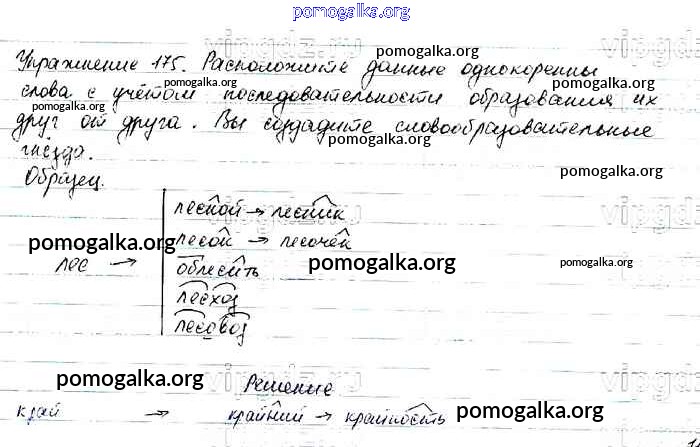 pomogalka.org
Упражнение 175. Расположите данные однокоренны
слова с учётом последовательности образования их
друг от друга. Вы создадите словообразовательные
гнёзда.
Образец.
лесной → лесник
лес → лесок → лесочек
облесить
лесхоз
лесовоз
Решение
край → крайний → крайность
pomogalka.org
pomogalka.org
pomogalka.org
pomogalka.org
pomogalka.org
pomogalka.org
pomogalka.org
pomogalka.org
pomogalka.org
pomogalka.org
pomogalka.org